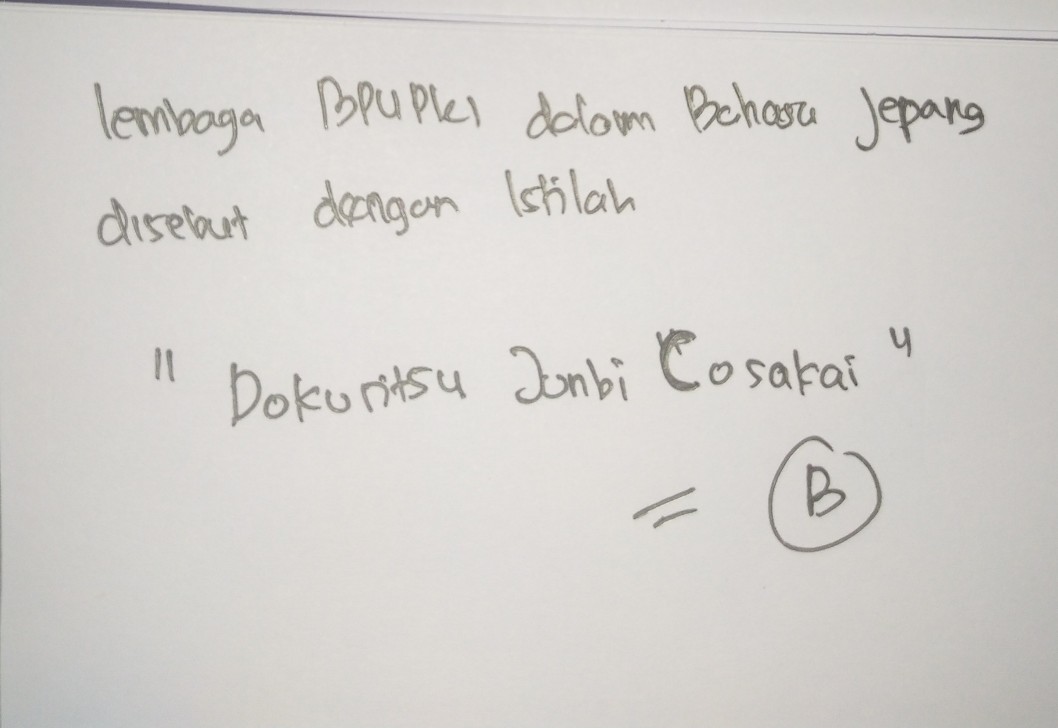 lembaga BPUPKI dalam Bahasa Jepang
disebut dengan Istilah
" Dokuritsu Junbi Cosakai "
= B